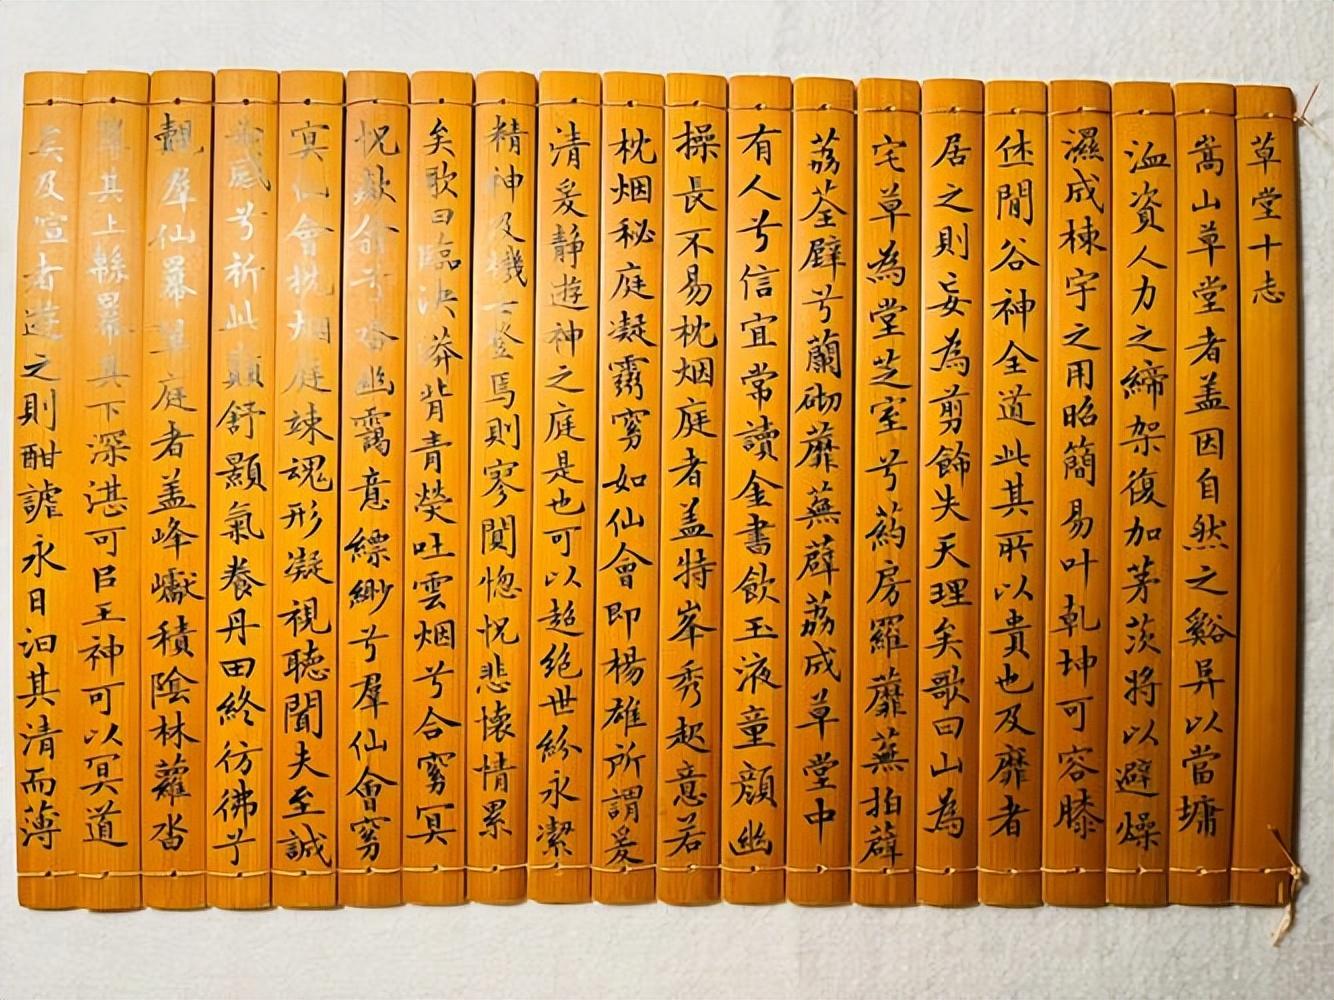 草堂十志
嵩山草堂者盖因自然之谿阜以當墉
洫資人力之締架復加茅茨將以避燥
濕成棟宇之用昭簡易叶乾坤可容膝
休閒谷神全道此其所以貴也及靡者
居之則妄為剪飾失天理矣歌曰山為
宅草為堂芝室兮葯房羅蘼蕪拍薜
荔荃壁兮蘭砌蘼蕪薜荔成草堂中
有人兮信宜常讀金書飲玉液童顏幽
操長不易枕烟庭者盖特峯秀起意若
枕烟秘庭凝霧窅如仙會即楊雄所謂爰
清爰靜遊神之庭是也可以超絕世紛永潔
精神及機士登焉則寥闃惚怳悲懷情累
矣歌曰臨泱漭背青熒吐雲烟兮合窅冥
怳欻翕兮沓幽靄意縹緲兮羣仙會窅
冥仙會枕烟庭竦魂形凝視聽聞夫至誠
必感兮祈此巔舒顥氣養丹田終彷彿兮
觀羣仙冪翠庭者盖峰巘積陰林蘿沓
翠其上綿冪其下深湛可以王神可以冥道
矣及喧者遊之則酣謔永日汩其清而薄